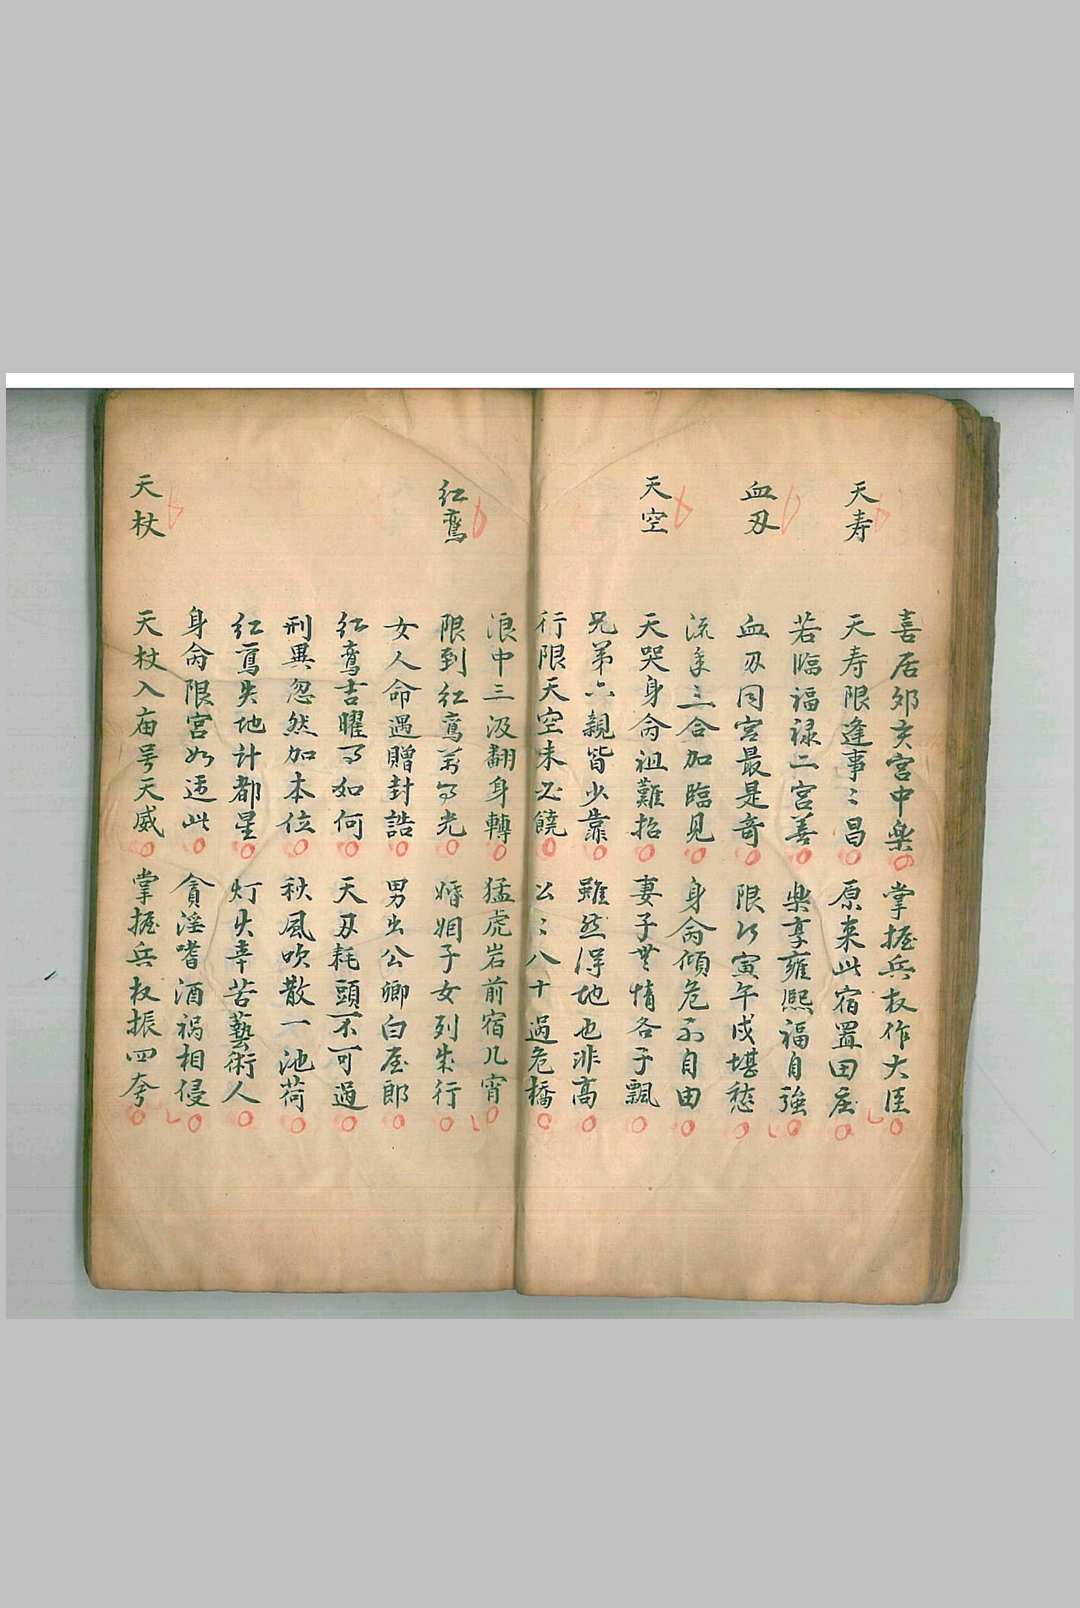 喜居卯亥宮中樂 掌握兵权作大臣
天寿
天寿限逢事〻昌 原来此宿置田庄
若臨福禄二宮善 樂享雍熙福自強
血刃
血刃同宮最是奇 限行寅午戌堪愁
流年三合加臨見 身命傾危不自由
天空
天哭身命祖難招 妻子無情各于飄
兄弟六親皆少靠 雖然得地也非高
行限天空未必饒 公〻八十過危橋
浪中三汲翻身轉 猛虎岩前宿几宵
红鸾
限到红鸾若有光 婚姻子女列朱行
女人命遇贈封誥 男出公卿白屋郎
红鸾吉曜事如何 天刃耗頭不可過
刑異忽然加本位 秋風吹散一池荷
红鸾失地计都星 灯火辛苦藝術人
身命限宮如遇此 貪淫嗜酒禍相侵
天杖
天杖入庙号天威 掌握兵权振四夸